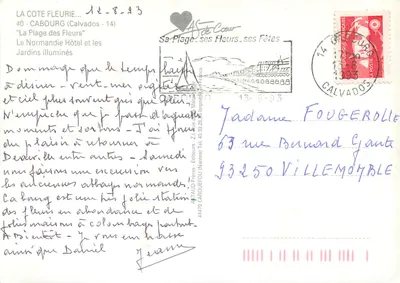 LA COTE FLEURIE...
12-8-93
40 - CABOURG (Calvados - 14)
"La Plage des Fleurs"
Le Normandie Hôtel et les
Jardins illuminés
Sa Plage, ses Fleurs, ses Fêtes
14 CABOURG
CALVADOS
Dommage que le temps laisse
à désirer - vent, mer agitée
et ciel plus souvent gris que bleu.
N'empêche que je passe d'agréables
moments et soirées - J'ai
du plaisir à retourner à
Deauville entre autres - Samedi
nous faisons une excursion vers
les anciennes abbayes normandes.
Cabourg est une très jolie station
des fleurs en abondance et de
jolies maisons à colombages partout.
A Bientôt - Je vous embrasse
ainsi que Daniel
Jeanne
Madame FOUGEROLLE
63 rue Bernard Gante
93250 VILLEMOMBLE